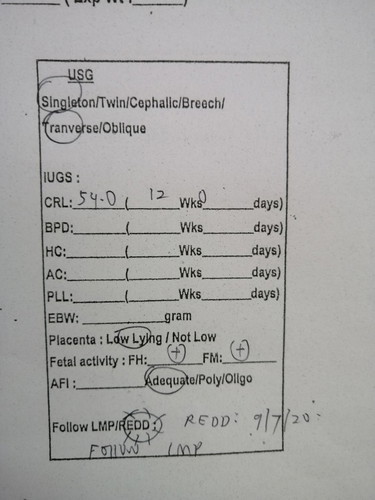 ( Exp Wt )
USG
Singleton/Twin/Cephalic/Breech/
Tranverse/Oblique
iUGS :
CRL: 54.0 ( 12 Wks 0 days)
BPD: ( Wks days)
HC: ( Wks days)
AC: ( Wks days)
PLL: ( Wks days)
EBW: gram
Placenta : Low Lying / Not Low
Fetal activity : FH: (+) FM: (+)
AFI : Adequate/Poly/Oligo
Follow LMP/REDD: REDD: 9/7/20
Follow LMP